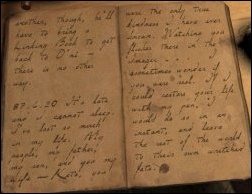 another, though, he'll
have to bring a
Linking Book to get
back to D'ni -
there is no other
way.
87.6.20 It's late
and I cannot sleep.
I've lost so much
in my life. My
people, my father,
my son, and you my
wife - Keta, you
were the only true
kindness I have ever
known. Watching you
flicker there in the
imager
sometimes wonder if
you were real. If I
could restore your life
with my pen, I
would do so in an
instant, and leave
the rest of the world
to their own wretched
fate.